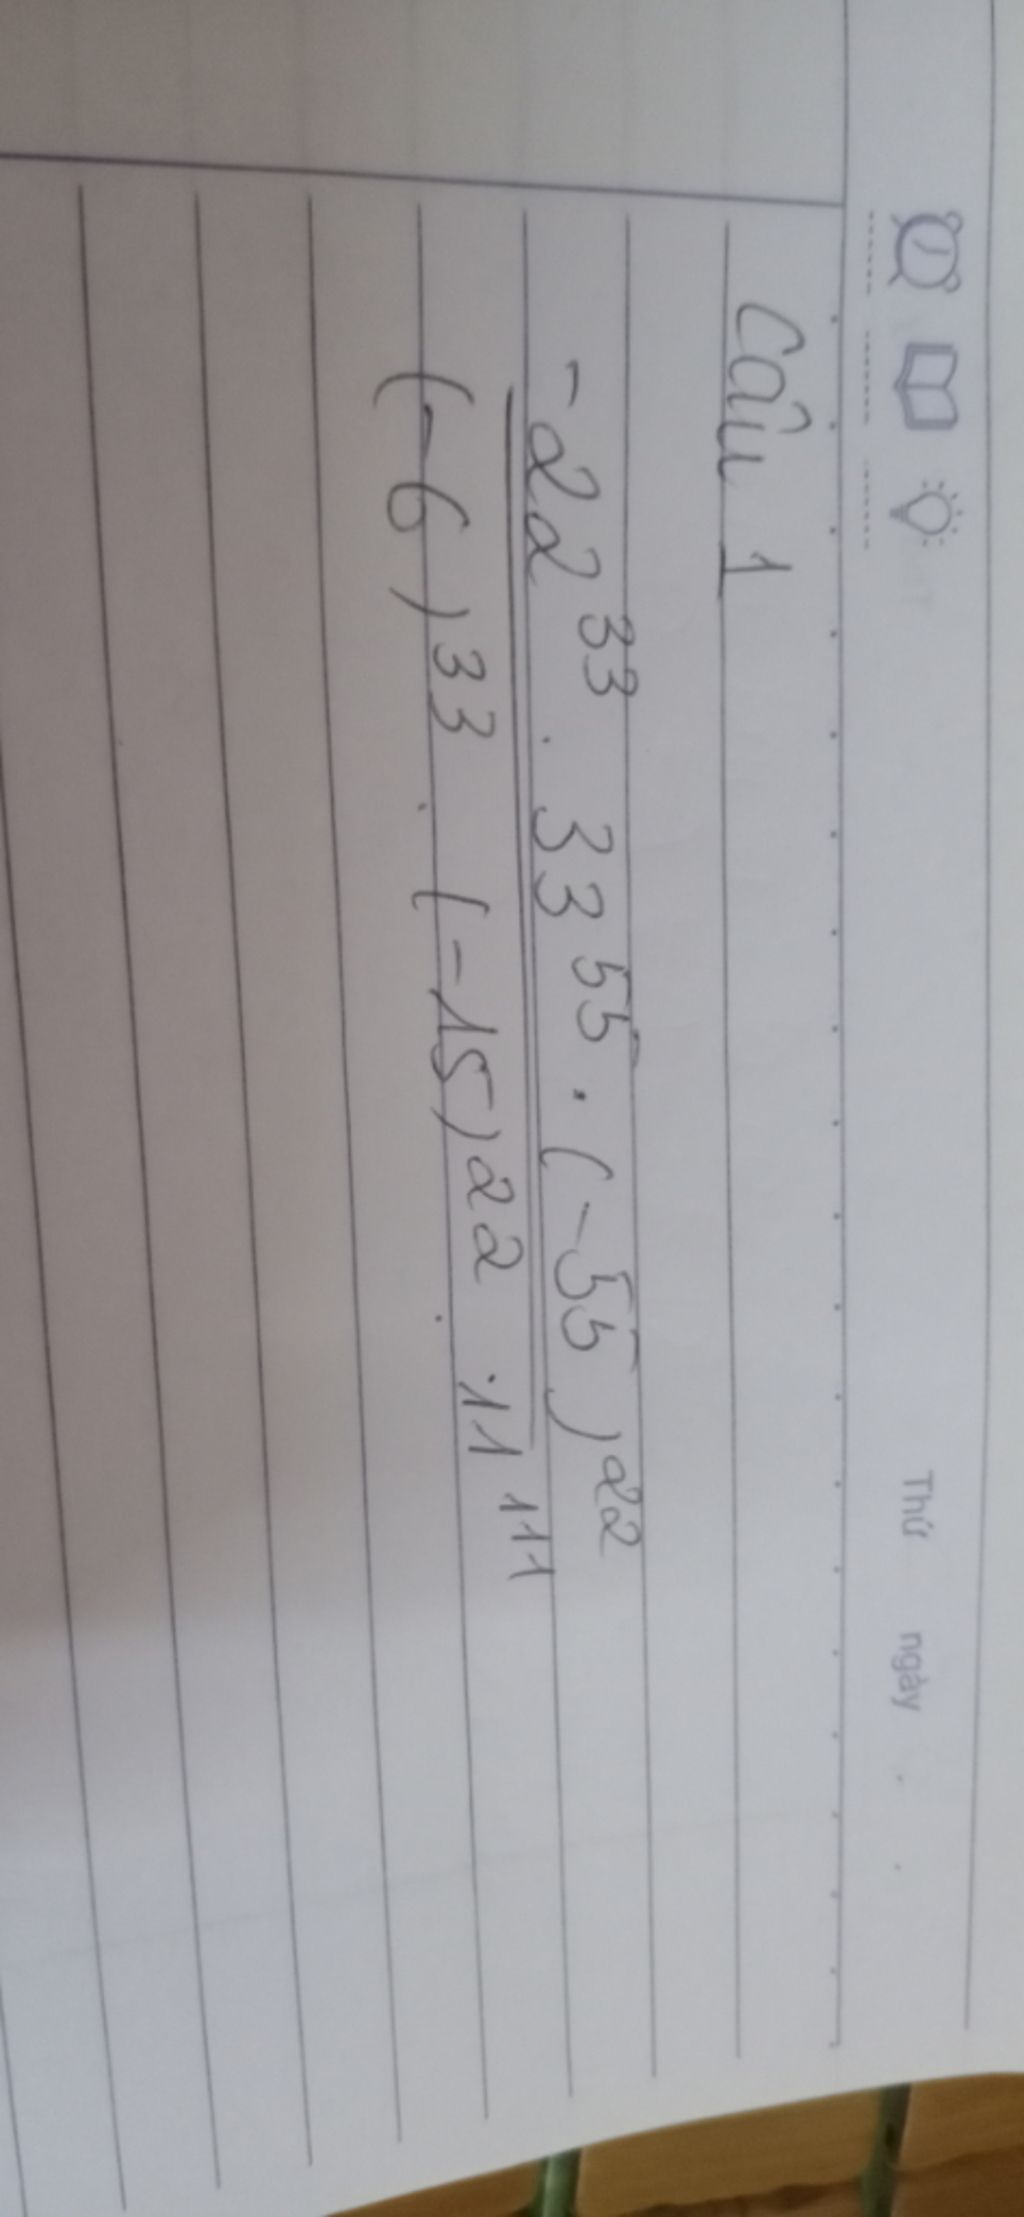 Thứ ngày
Câu 1
-22³³ . 33⁵⁵ . (-55)²²
(-6)³³ . (-15)²² . 11¹¹¹